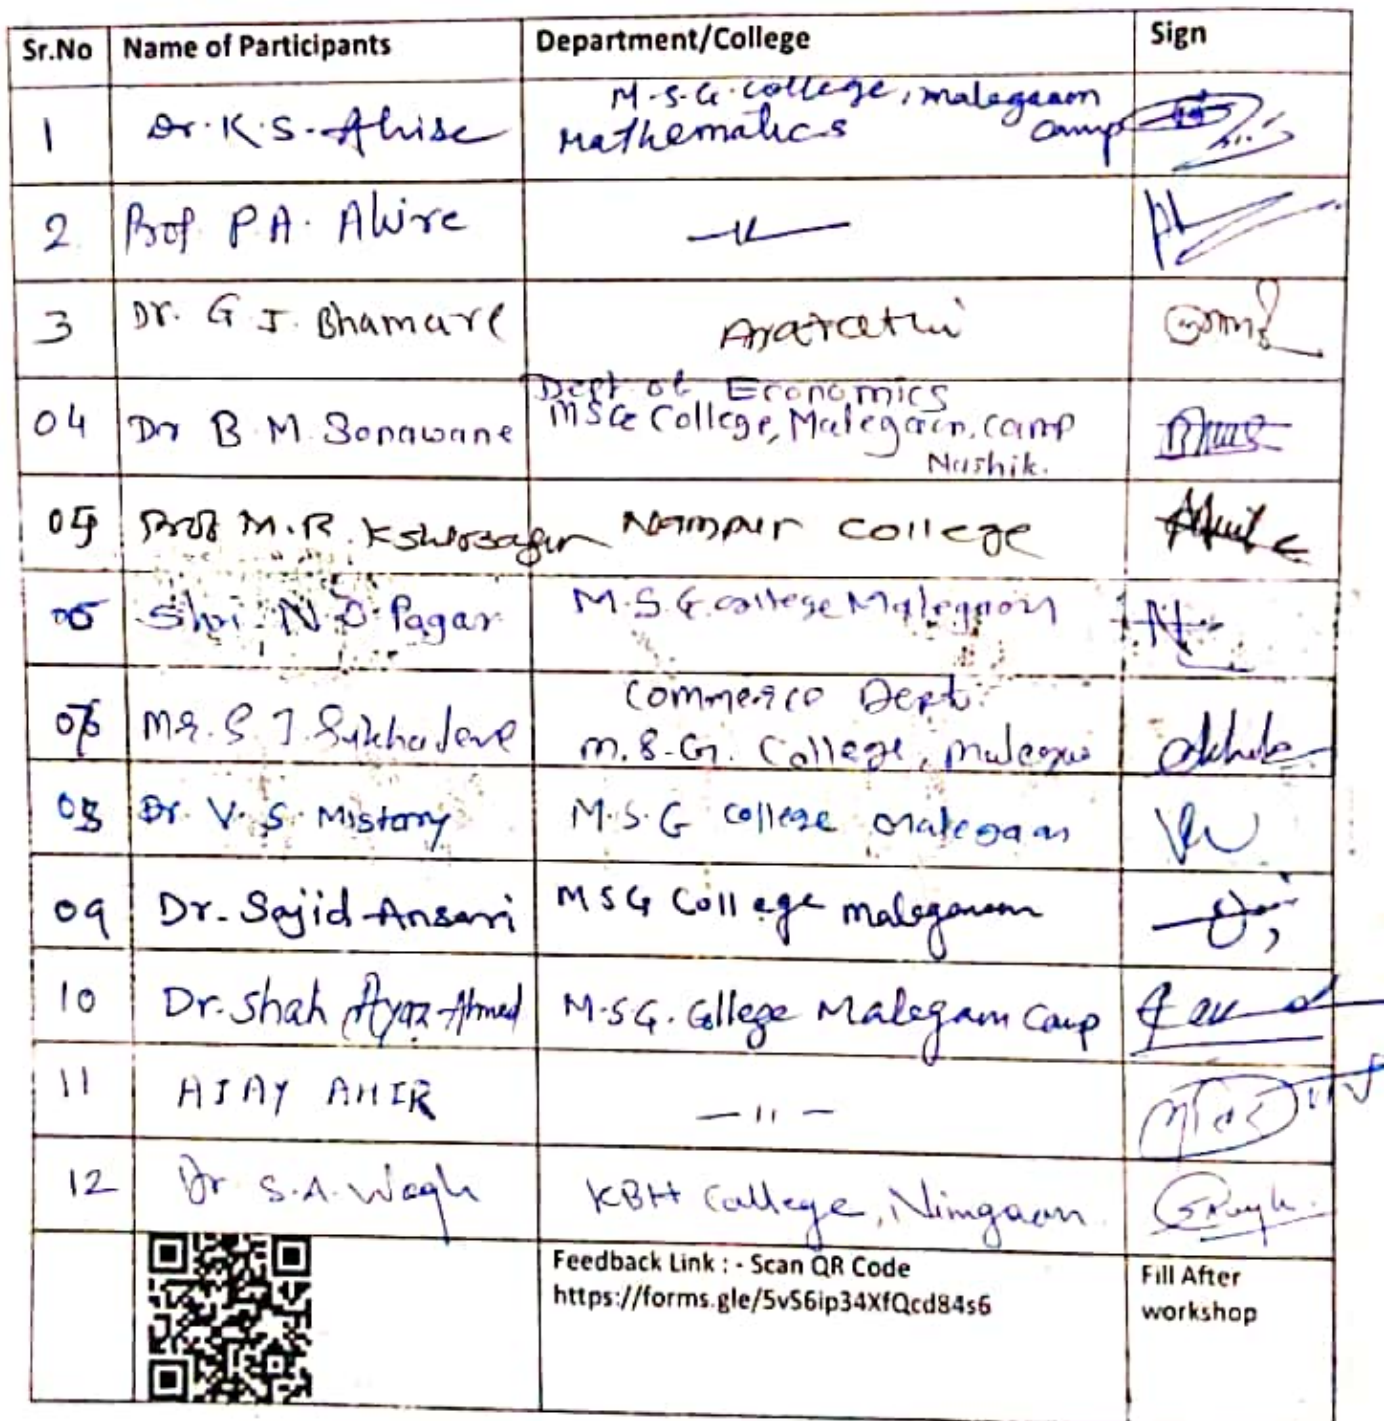 Sr.No Name of Participants Department/College Sign
1 Dr. K. S. Ahise M.S.G. College, malegaon
Mathematics camp
2 Prof P.A. Ahire —〃—
3 Dr. G. J. Bhamare
Dept of Economics
04 Dr B. M. Sonawane MSG College, Malegaon, Camp
Nashik.
05 Prof M.R. Kshirsagar Nampur College
Shri. N D Pagar M.S.G. college Malegaon
Commerce Dept.
Mr. S. J. M.S.G. College,
08 Dr. V. S. Mistary M.S.G College malegaon
09 Dr. Sajid Ansari MSG College malegaon
10 Dr. Shah Ayaz Ahmed M.S.G. College Malegaon Camp
11 AJAY AHIR — 11 —
12 Dr S.A. Wagh KBH College, Nimgaon.
Feedback Link : - Scan QR Code Fill After
https://forms.gle/5vS6ip34XfQcd84s6 workshop